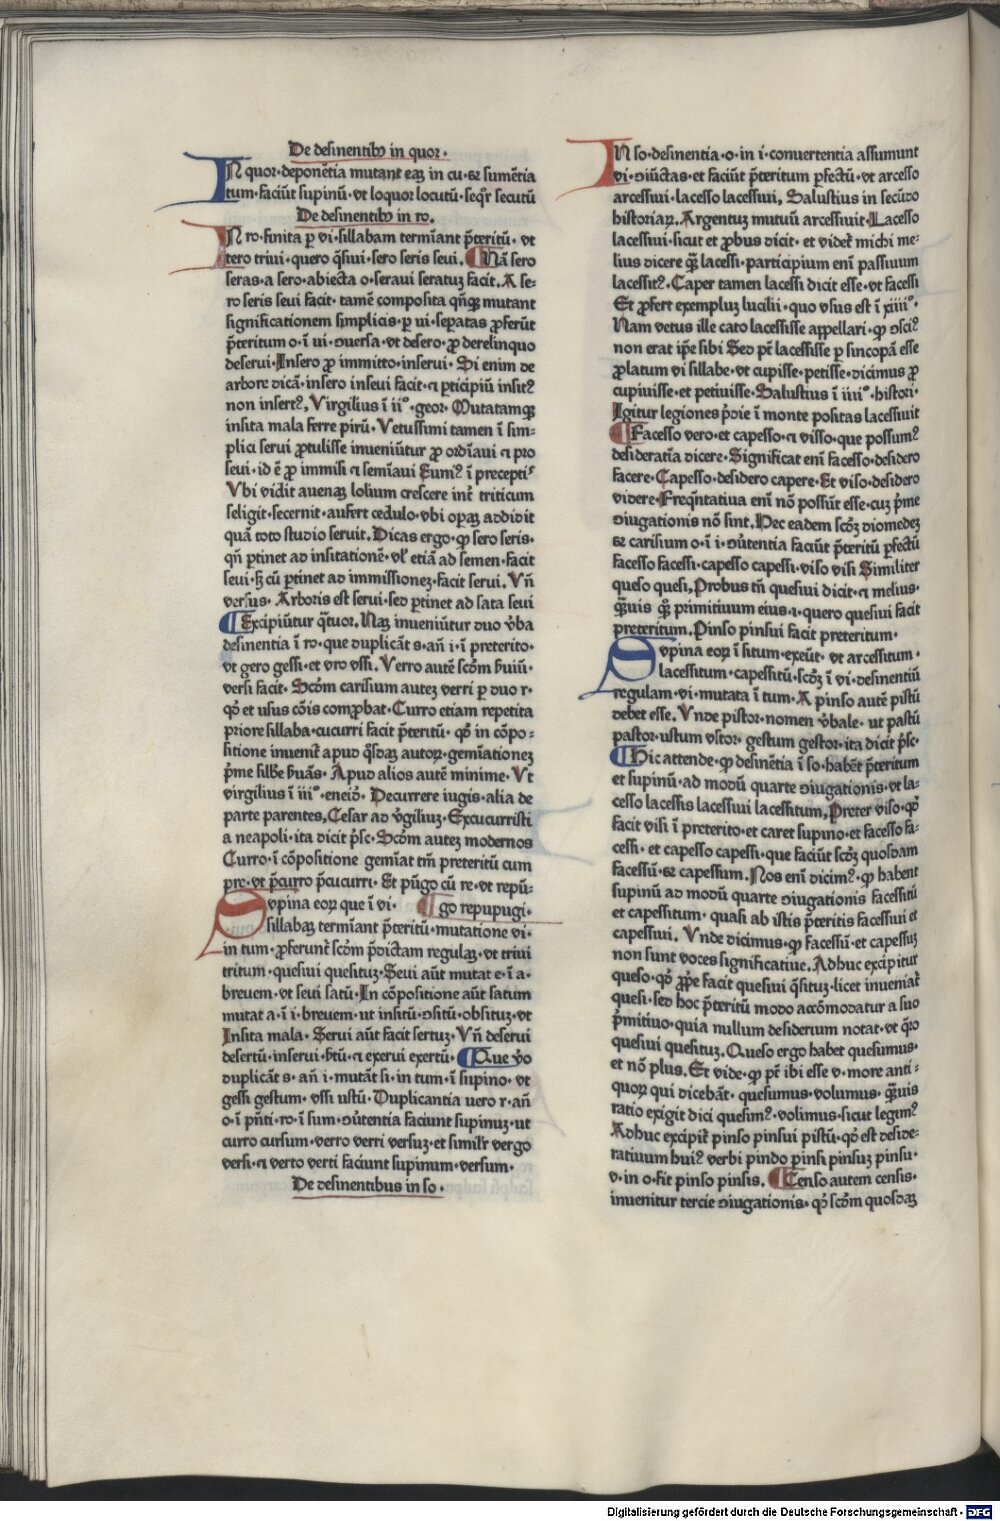 De desinentibꝰ in quor·
IN quor·deponētia mutant eaꝫ in cu·ꝫ sumētia
tum·faciūt supinū·vt loquor locutū·seqr̄ secutū
De desinentibꝰ in ro.
IN ro·finita ꝑ vi·sillabam termīant p̄teritū·vt
tero triui·quero q̄siui·sero seris seui. ¶Nā sero
seras·a sero·abiecta o·seraui seratuꝫ facit.A se-
ro seris seui facit·tamē composita qn̄qꝫ mutant
significationem simplicis·ꝑ ui·seꝑatas ꝓferūt
p̄teritum o·ī ui ↄuersa·vt desero·ꝓ derelinquo
deserui·Insero ꝓ immitto·inserui·Si enim de
arbore dicā·insero inseui facit·⁊ ꝑticipiū insitꝰ
non insertꝰ,Virgilius ī ii°·geor·Mutatamqꝫ
insita mala ferre pirū·Vetussimi tamen ī sim-
plici serui ꝓtulisse inueniūtur ꝓ ordīaui ⁊ pro
seui·id ē ꝓ immisi ⁊ semīaui Eumꝰ ī preceptiˢ
Vbi vidit auenaꝫ lolium crescere int̄ triticum
seligit·secernit·aufert cedulo·vbi opaꝫ addidit
quā toto studio seruit.Dicas ergo·ꝙ sero seris·
qn̄ ꝑtinet ad insitationē·vl̄ etiā ad semen·facit
seui·sꝫ cū ꝑtinet ad immissioneꝫ·facit serui.Vn̄
versus·Arboris est serui·sed ꝑtinet ad sata seui
¶Excipiūtur q̄tuor.Naꝫ inueniūtur duo v̄ba
desinentia ī ro·que duplicāt s·an̄ i·ī preterito·
vt gero gessi·et vro vssi.Verro autē scd̄m ẜuiū·
versi facit·Scd̄m carisium auteꝫ verri ꝑ duo r·
qd̄ et usus cōis comꝓbat·Curro etiam repetita
priore sillaba·cucurri facit p̄teritū·qd̄ in cōpo-
sitione inuenit̄ apud q̄sdaꝫ autoꝝ·gemīationeꝫ
p̄me silb̄e ẜuās·Apud alios autē minime·Vt
virgilius ī iii°·eneid̄·Decurrere iugis·alia de
parte parentes,Cesar ad v̄giliuꝫ·Excucurristi
a neapoli·ita dicit p̄sc·Scd̄m auteꝫ modernos
Curro·ī cōpositione gemīat tm̄ preteritū cum
pre·vt p̄curro p̄cucurri·Et pūgo cū re·vt repū-
SVpina eoꝝ que ī vi· ¶go repupugi·
sillabaꝫ termīant p̄teritū·mutatione vi·
in tum·ꝓferunt̄ scd̄m p̄dictam regulaꝫ·vt triui
tritum·quesiui quesituꝫ·Seui aūt mutat e·ī a·
breuem·vt seui satū·In cōpositione aūt satum
mutat a·ī i·breuem·ut insitū·ↄsitū·obsituꝫ·vt
Insita mala·Serui aūt facit sertuꝫ·Vn̄ deserui
desertū·inserui·ẜtū·⁊ exerui exertū·¶Que v̄o
duplicāt s·an̄ i·mutāt si·in tum·ī supino·vt
gessi gestum·vssi ustū·Duplicantia uero r·an̄
o·ī pn̄ti·ro·ī sum·ↄu̇tentia faciunt supinuꝫ·ut
curro cursum·verro verri versuꝫ·et similr̄ vergo
versi·⁊ verto verti faciunt supinum·versum·
De desinentibus in so·
IN so·desinentia·o·in i·conuertentia assumunt
vi·ↄiūctas·et faciūt p̄teritum ꝑfectū·vt arcesso
arcessiui·lacesso lacessiui, Salustius in secūdo
historiaꝝ.Argentuꝫ mutuū arcessiuit·Lacesso
lacessiui·sicut et ꝓbus dicit·et videt̄ michi me-
lius dicere qꝫ̄ lacessi·participium enī passiuum
lacessitꝰ.Caper tamen lacessi dicit esse·vt facessi
Et ꝓfert exempluꝫ lucilii·quo vsus est ī xiiii°·
Nam vetus ille cato lacessisse appellari·ꝙ ↄsciꝰ
non erat ip̄e sibi Sed pt̄ lacessisse ꝑ sincopā esse
ꝓlatum vi sillabe·vt cupisse·petisse·dicimus ꝓ
cupiuisse·et petiuisse·Salustius ī iiii°·histori·
Igitur legiones p̄die ī monte positas lacessiuit
¶Facesso vero·et capesso·⁊ visso·que possumꝰ
desideratīa dicere·Significat enī facesso·desidero
facere·Capesso·desidero capere·Et viso·desidero
videre·Freqn̄tatiua enī nō possūt esse·cuꝫ p̄me
ↄiugationis nō sint.Hec eadem scd̄ꝫ diomedeꝫ
ꝫ carisium o·ī i·ↄu̇tentia faciūt p̄teritū ꝑfectū
facesso facessi·capesso capessi·viso visi Similiter
queso quesi,Probus tn̄ quesiui dicit·⁊ melius·
qꝫ̄uis qꝫ̄ primitiuum eius·ı·quero quesiui facit
preteritum.Pinso pinsui facit preteritum·
SVpina eoꝝ ī situm·exeūt·vt arcessitum·
lacessitum·capessitū·scd̄ꝫ ī vi·desinentiū
regulam·vi·mutata ī tum·A pinso autē pistū
debet esse.Vnde pistor·nomen v̄bale·ut pastū
pastor·ustum vstor·gestum gestor·ita dicit p̄sc·
¶Hic attende·ꝙ desinētia ī so·habēt p̄teritum
et supinū·ad modū quarte ↄiugationis·vt la-
cesso lacessis lacessiui lacessitum,Preter viso·qd̄
facit visi ī preterito·et caret supino·et facesso fa-
cessi·et capesso capessi·que faciūt scd̄ꝫ quosdam
facessū·ꝫ capessum.Nos enī dicimꝰ·ꝙ habent
supinū ad modū quarte ↄiugationis facessitū
et capessitum·quasi ab istis p̄teritis facessiui et
capessiui. Vnde dicimus·ꝙ facessū·et capessuꝫ
non sunt voces significatiue.Adhuc excipitur
queso·qd̄ ꝓpe facit quesiui q̄situꝫ·licet inueniat̄
quesi·sed hoc p̄teritū modo accōmodatur a suo
p̄mitiuo·quia nullum desiderium notat·vt q̄ro
quesiui quesituꝫ.Queso ergo habet quesumus·
et nō plus.Et vide·ꝙ pt̄ ibi esse v·more anti-
quoꝝ qui dicebāt·quesumus·volumus·qꝫ̄uis
ratio exigit dici quesimꝰ·volimus·sicut legimꝰ
Adhuc excipit̄ pinso pinsui pistū·qd̄ est deside-
ratiuum huiꝰ verbi pindo pinsi pinsuꝫ pinsu·
v·in o·fit pinso pinsis. ¶Censo autem censis·
inuenitur tercie ↄiugationis·qd̄ scd̄m quosdaꝫ
Digitalisierung gefördert durch die Deutsche Forschungsgemeinschaft - DFG